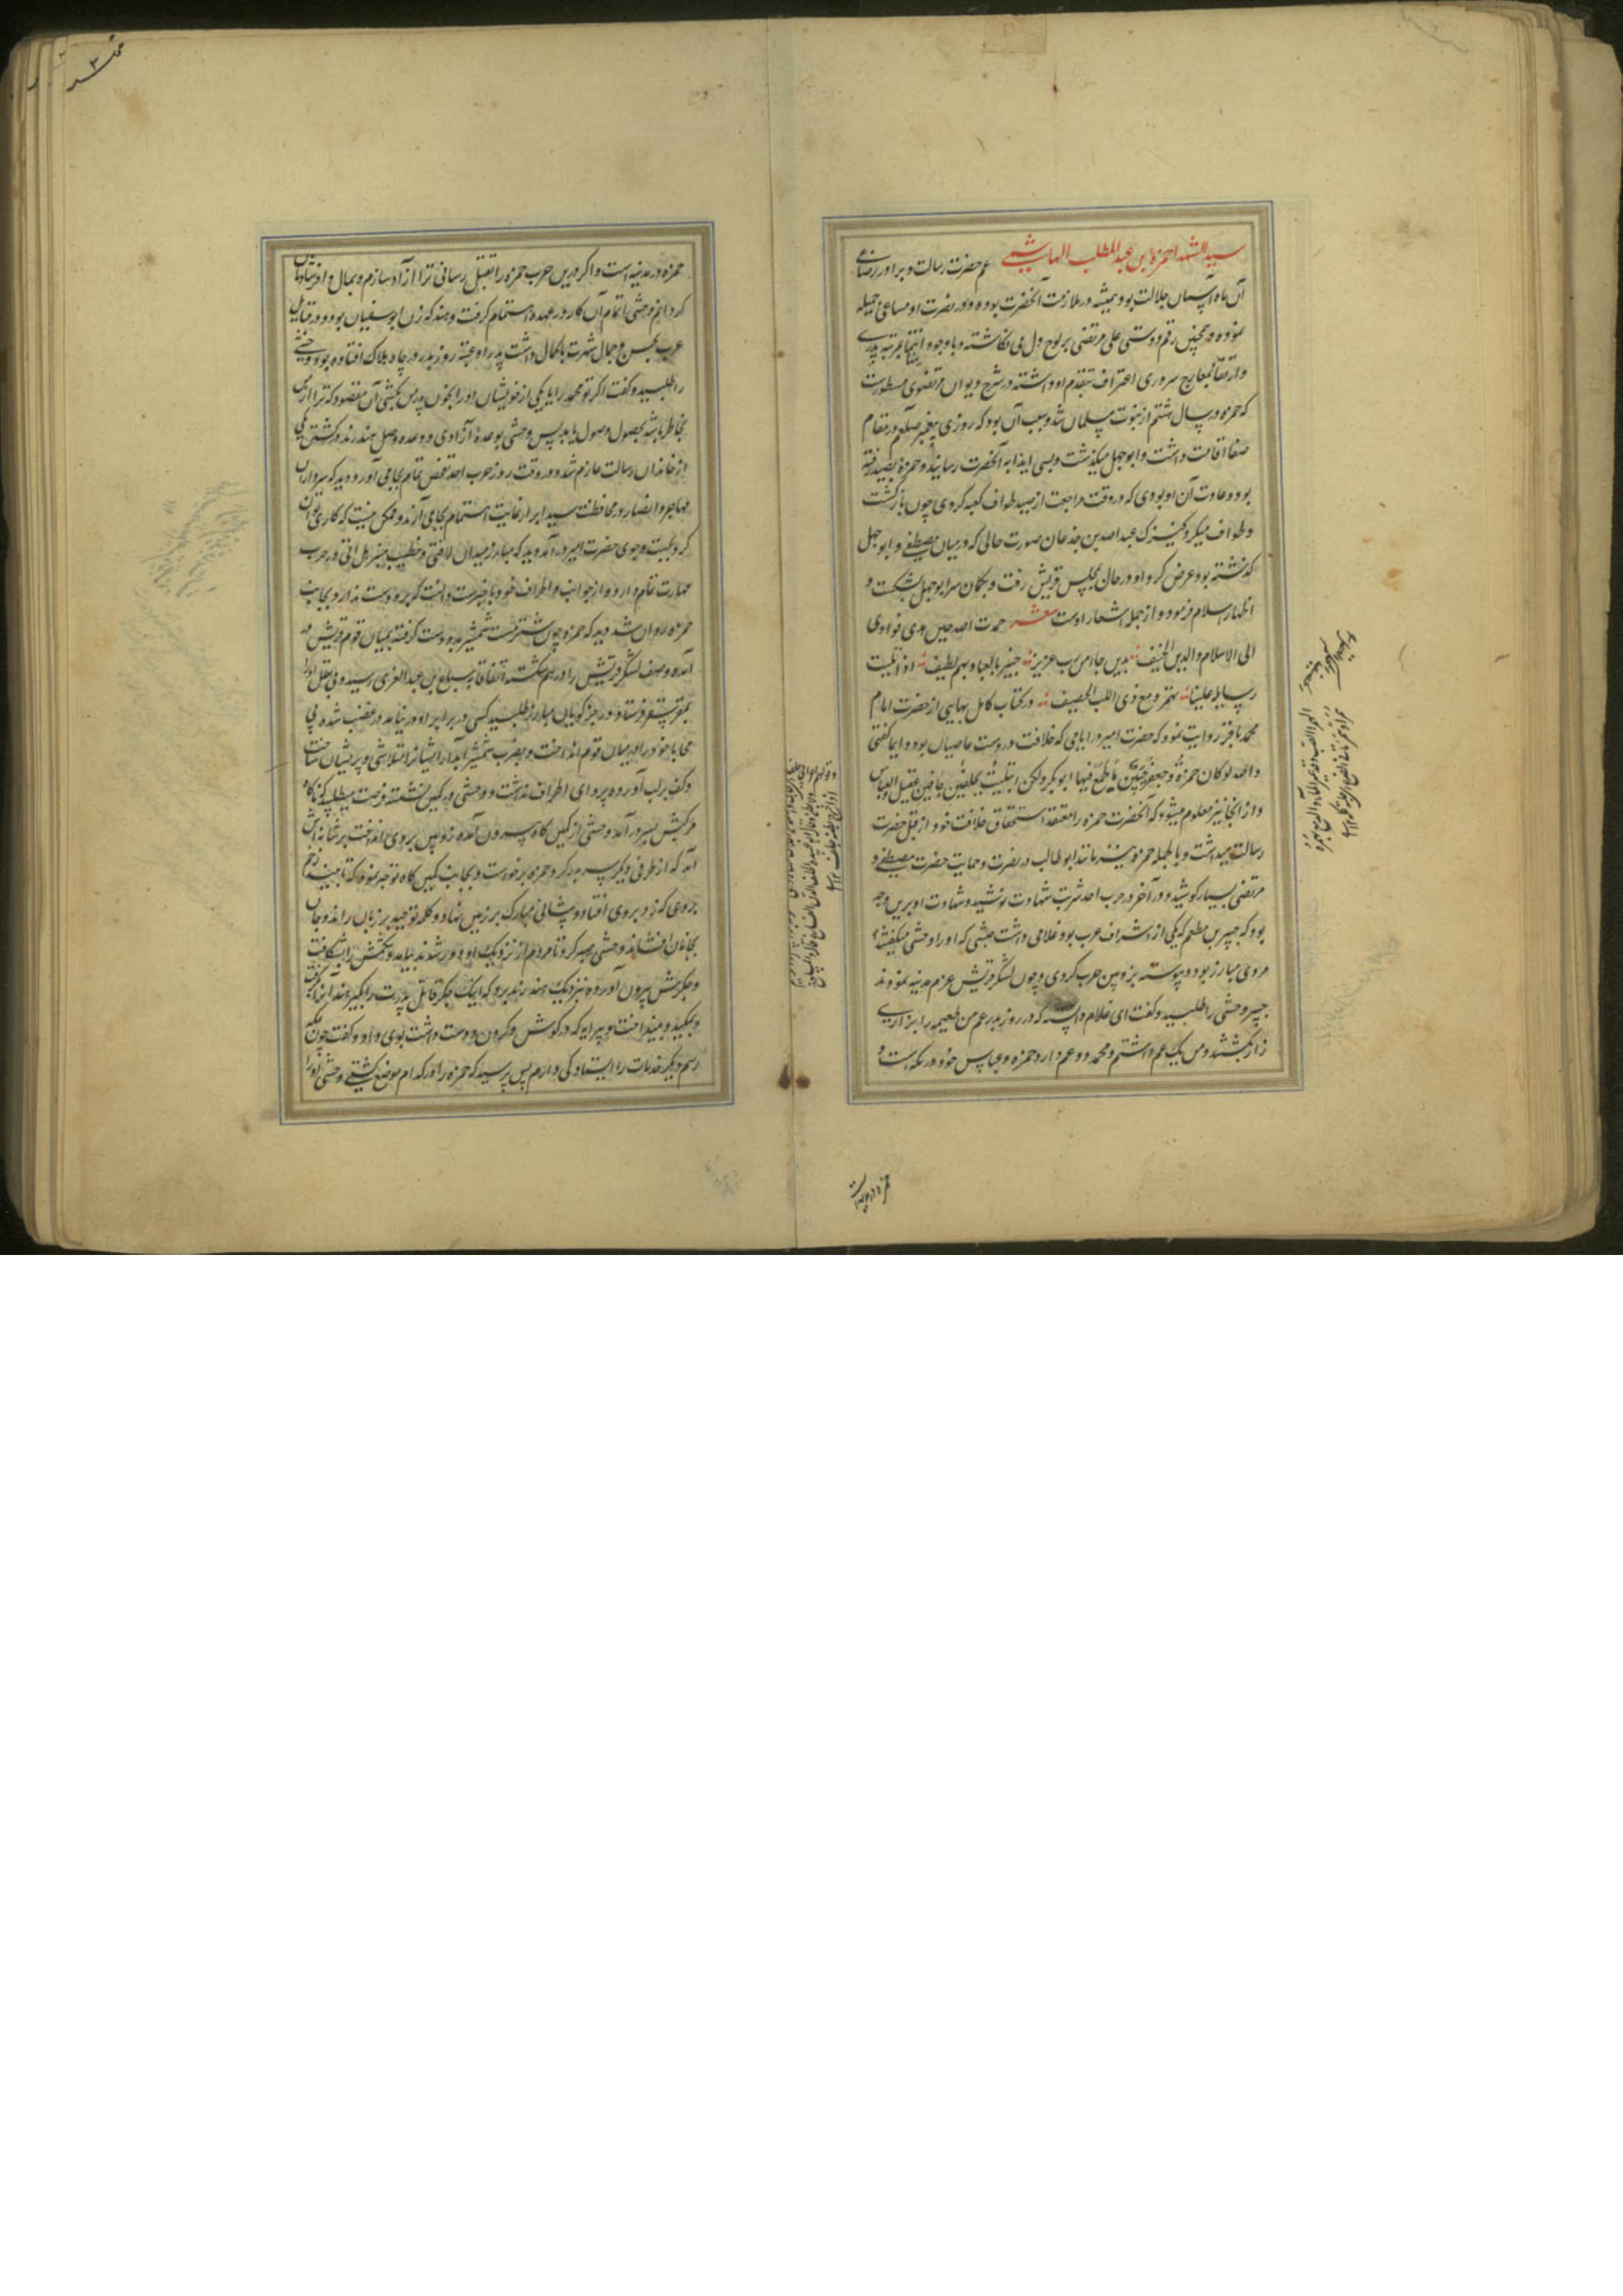 سید الشهدا حمزة بن عبد المطلب الهاشمی عم حضرت رسالت و برادر رضاعی
آن ماه آسمان جلالت بود و همیشه در ملازمت آنحضرت بوده و در نصرت او مساعی جمیله
نموده و همچنین رقم دوستی علی مرتضی بر لوح دل می نکاشته و با وجود انتما بمرتبه پدری
وارتقا بمعارج سروری اعتراف بتقدم او داشته در شرح دیوان مرتضوی مسطورست
که حمزه در سال هشتم از نبوت مسلمان شد و سبب آن بود که روزی پیغمبر صلعم در مقام
صفا اقامت داشت و ابو جهل میکذشت و بسی ایذا به آنحضرت رسانید و حمزه بصید رفته
بود و عادت آن او بودی که در وقت مراجعت از صید طواف کعبه کردی چون باز کشت
و طواف میکرد کنیزک عبد الله بن جذعان صورت حالی که در میان مصطفی و ابو جهل
کذشته بود عرض کرد او در حال بمجلس قریش رفت و بکمان سر ابو جهل بشکست و
اظهار اسلام فرمود و از جمله اشعار اوست شعر حمدت الله حین هدی فوادی
الی الاسلام والدین الحنیف لدین جاء من رب عزیز خبیر بالعباد بهم لطیف اذا تلیت
رسایله علینا تحدر دمع ذی اللب الحصیف در کتاب کامل بهایی از حضرت امام
محمد باقر روایت نموده که حضرت امیر در ایامی که خلافت در دست عاصیان بوده ایما کفتی
والله لو کان حمزة و جعفر حیین ما طمع فیها ابو بکر ولکن ابتلیت بجلفین جافین عقیل والعباس
و از اینجا نیز معلوم میشود که آنحضرت حمزه را معتقد استحقاق خلافت خود از قبل حضرت
رسالت میداشت و بالجمله حمزه نیز مانند ابو طالب در نصرت و حمایت حضرت مصطفی و
مرتضی بسیار کوشید و در آخر در حرب احد شربت شهادت نوشید و شهادت او برین وجه
بود که جبیر بن مطعم که یکی از اشراف عرب بود غلامی داشت حبشی که او را وحشی میکفتند
مردی مبارز بود و پیوسته بزوبین حرب کردی و چون لشکر قریش عزم مدینه نمودند
جبیر وحشی را طلبید و کفت ای غلام دانسته که در روز بدر عم من طعیمه را بزاری
زار بکشتند و من یک عم داشتم و محمد دو عم دارد حمزه و عباس خود در مکه است و
حمزه در مدینه است و اکر درین حرب حمزه را بقتل رسانی ترا آزاد سازم و بمال وافر شادمان
کردانم وحشی اتمام آن کار در عهده اهتمام کرفت و هند که زن ابو سفیان بود و در قبایل
عرب بحسن و جمال شهرت باکمال داشت پدر او عتبه روز بدر در چاه هلاک افتاده بود وحشی
را طلبید و کفت اکر تو محمد را یا یکی از خویشان او را بخون پدر من بکشی آن مقصود که ترا از من
بخاطر باشد بحصول وصول یابد پس وحشی بوعده آزادی و وعده وصل هند زند و کشتن یکی
از خاندان رسالت عازم شد و در وقت روز حرب احد تفحص تمام بجای آورد دید که سرداران
مهاجر و انصار در محافظت سید ابرار غایت اهتمام بجای آرند و ممکن نیست که کاری توان
کرد بجست وجوی حضرت امیر در آمد دید که مبارز میدان لافتی و خطیب منبر هل اتی در حرب
مهارت تمام دارد و از جوانب و اطراف خود با خبرست دانست که برو دست ندارد بجانب
حمزه روان شد دید که حمزه چون شتر مست شمشیر بدو دست کرفته بمیان قوم قریش در
آمده وصف لشکر قریش را در هم شکسته اتفاقا به سباع بن عبد العزی رسید و فی الحال او را
بمقر سقر فرستاد و رجز کویان مبارز طلبید کسی در برابر او در نیامد در غضب شده بی
محابا خود را در میان قوم انداخت و بضرب شمشیر آبدار ایشانرا متلاشی و پریشان ساخت
و کف بر لب آورده پروای اطراف نداشت و وحشی در کمین نشسته فرصت میطلبید که ناکاه
مرکبش بسر در آمد وحشی از کمین کاه بیرون آمده زوبین بروی انداخت بر عانه اش
آمد که از طرفی دیکر سر بدر کرد حمزه برخواست و بجانب کمین کاه توجه نمود که تا ببیند زخم
بروی که زد بروی افتاد و پیشانی مبارک بر زمین نهاد و کلمه توحید بر زبان راند و جان
بجانان افشاند وحشی صبر کرد تا مردم از نزدیک او دور شدند بیامد و شکمش را بشکافت
و جکرش بیرون آورده نزدیک هند زند برد که اینک جکر قاتل پدرت را بکیر هند آنرا بکرفت
و بمکید و بینداخت و پیرایه که در کوش و کردن و دست داشت بوی داد و کفت چون بمکه
رسم دیکر خدمات را ایستادکی دارم پس پرسید که حمزه را در کدام موضع کشتی وحشی او را
حمزه در مدینه است